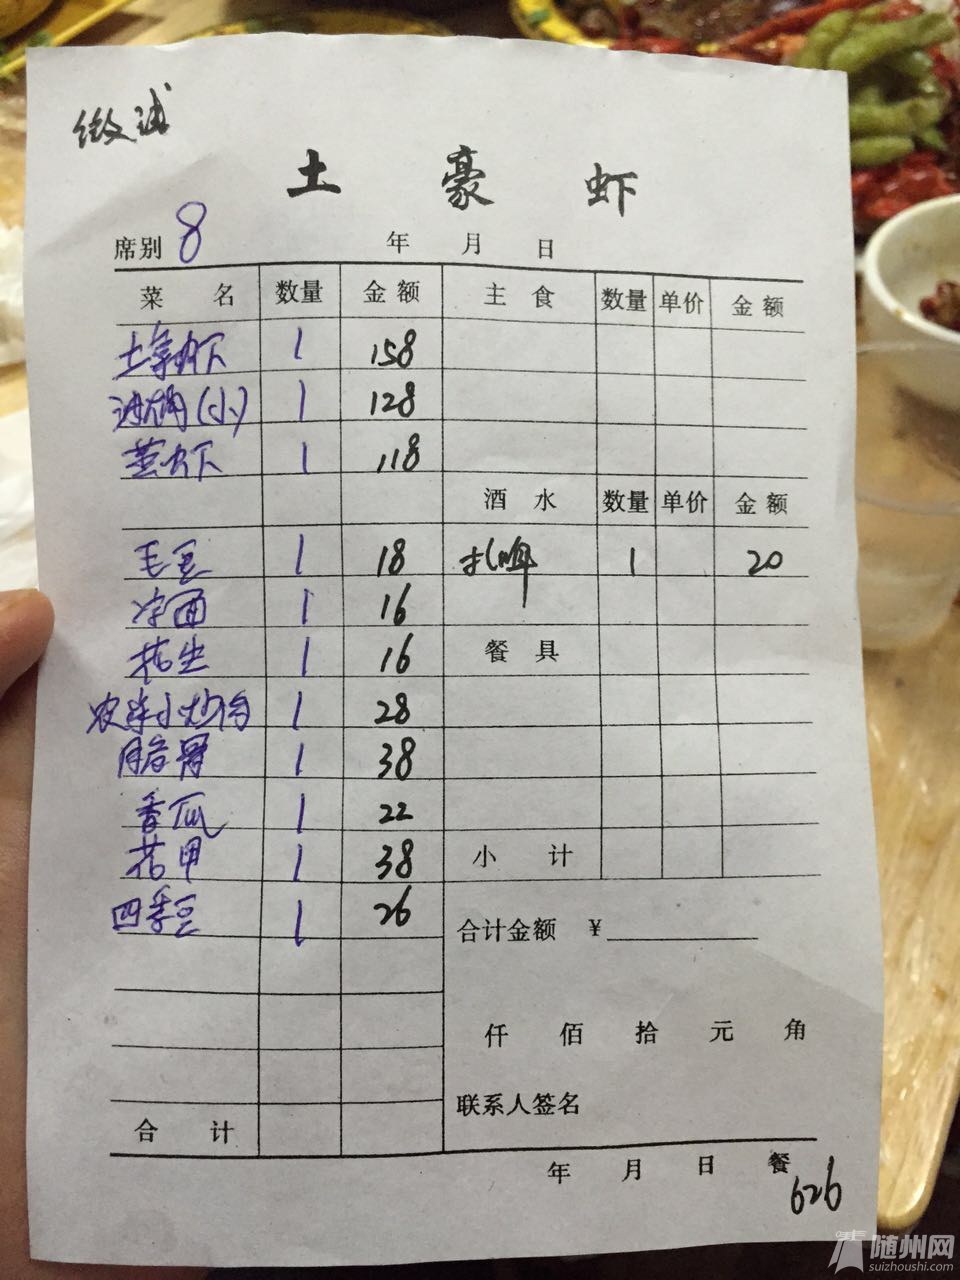 微试
土豪虾
席别 8 年 月 日
菜名 数量 金额 主食 数量 单价 金额
土豪虾 1 158
油焖(小) 1 128
蒸虾 1 118
酒水 数量 单价 金额
毛豆 1 18 扎啤 1 20
凉面 1 16
花生 1 16 餐具
农家小炒肉 1 28
脆骨 1 38
香瓜 1 22
花甲 1 38 小计
四季豆 1 26
合计金额 ¥
仟 佰 拾 元 角
联系人签名
合计
年 月 日 餐
626
随州网
suizhoushi.com